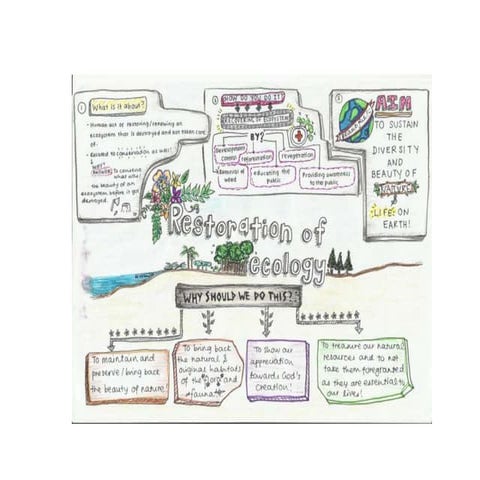 1
What is it about?
• Human act of restoring/renewing an
ecosystem that is destroyed and not taken care
of.
• Related to conservation as well!
WHY?
To conserve
the beauty of an
ecosystem before it got
destroyed.
2
HOW DO YOU DO IT?
RECOVERING OF ECOSYSTEM
BY?
Development
control
reforestation
revegetation
Removal of
weed
educating the
public
Providing awareness
to the public
3
AIM
TO SUSTAIN
THE
DIVERSITY
AND
BEAUTY OF
NATURE
&
LIFE ON
EARTH!
Restoration of
ecology
WHY SHOULD WE DO THIS?
To maintain and
preserve/bring back
the beauty of nature!
To bring back
the natural &
original habitats
of the flora and
fauna
To show our
appreciation
towards God's
Creation!
To treasure our natural
resources and to not
take them forgranted
as they are essential to
our lives!